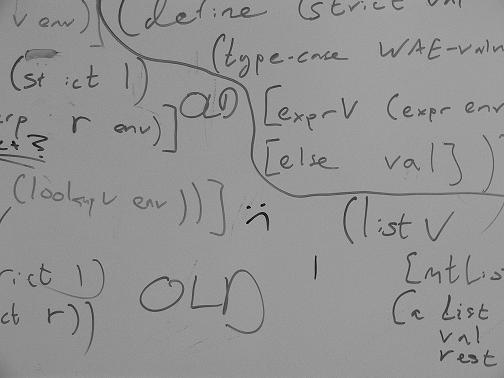 v env)]
(define (strict val
(type-case WAE-value
(strict l)
OLD
[exprV (expr env
r env)]
[else val]))
(lookup v env))]
:(
(listV
rict l)
OLD
[mtList
ct r))
(a List
val
rest